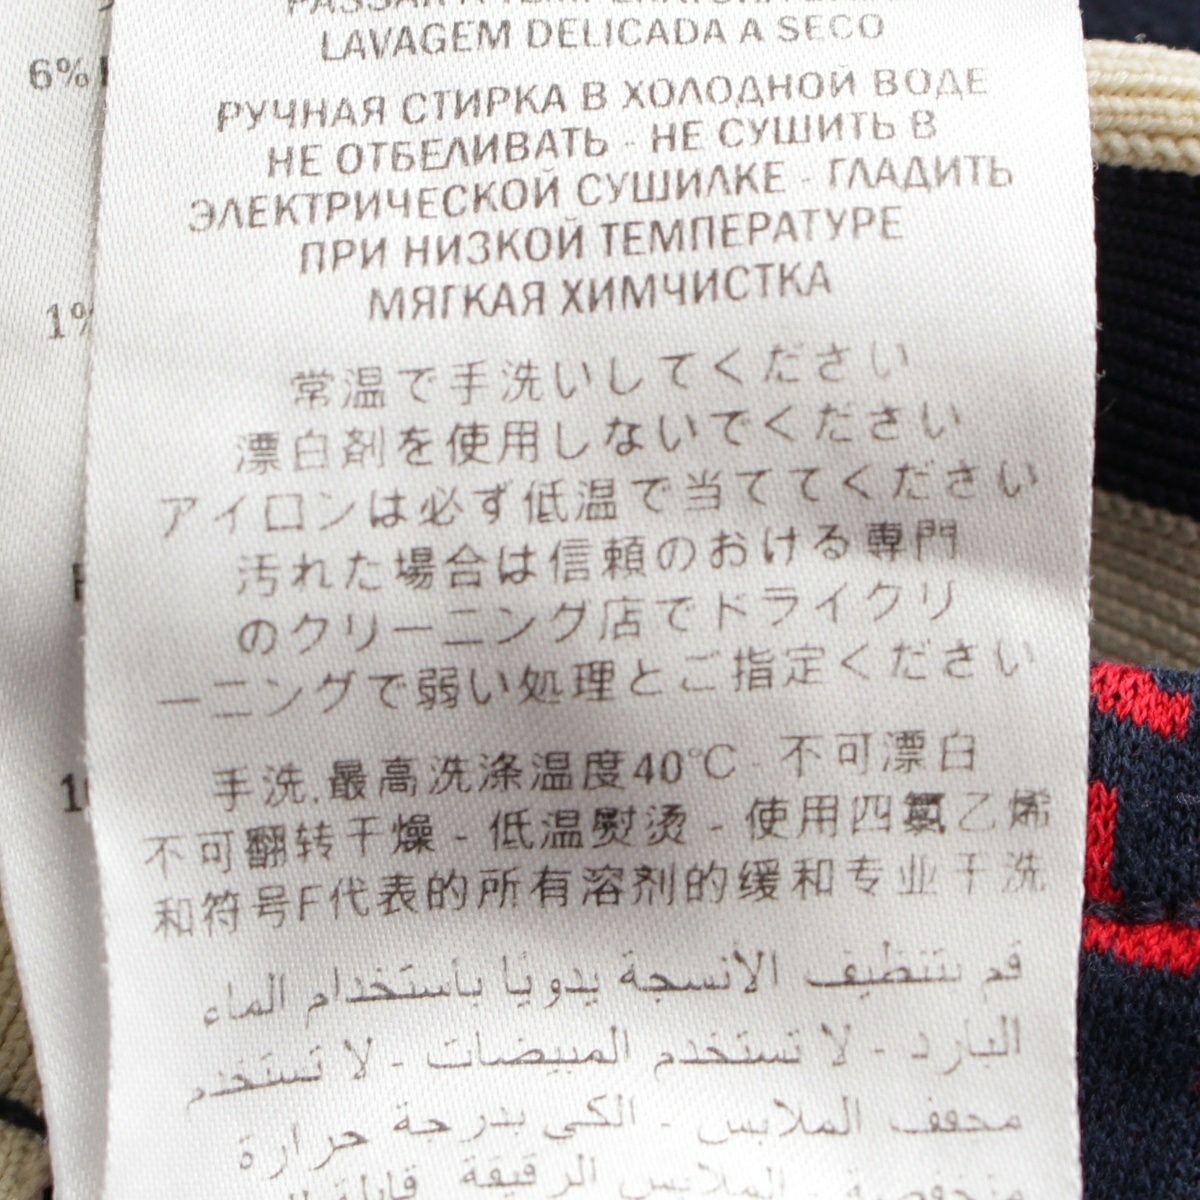 LAVAGEM DELICADA A SECO
6%
РУЧНАЯ СТИРКА В ХОЛОДНОЙ ВОДЕ
НЕ ОТБЕЛИВАТЬ - НЕ СУШИТЬ В
ЭЛЕКТРИЧЕСКОЙ СУШИЛКЕ - ГЛАДИТЬ
ПРИ НИЗКОЙ ТЕМПЕРАТУРЕ
МЯГКАЯ ХИМЧИСТКА
1%
常温で手洗いしてください
漂白剤を使用しないでください
アイロンは必ず低温で当ててください
汚れた場合は信頼のおける専門
のクリーニング店でドライクリ
ーニングで弱い処理とご指定ください
手洗.最高洗涤温度40°C - 不可漂白
不可翻转干燥 - 低温熨烫 - 使用四氯乙烯
和符号F代表的所有溶剂的缓和专业干洗
قم بتنظيف الانسجة يدويًا باستخدام الماء
البارد - لا تستخدم المبيضات - لا تستخدم
مجفف الملابس - الكي بدرجة حرارة
منخفضة - الملابس الرقيقة قابلة